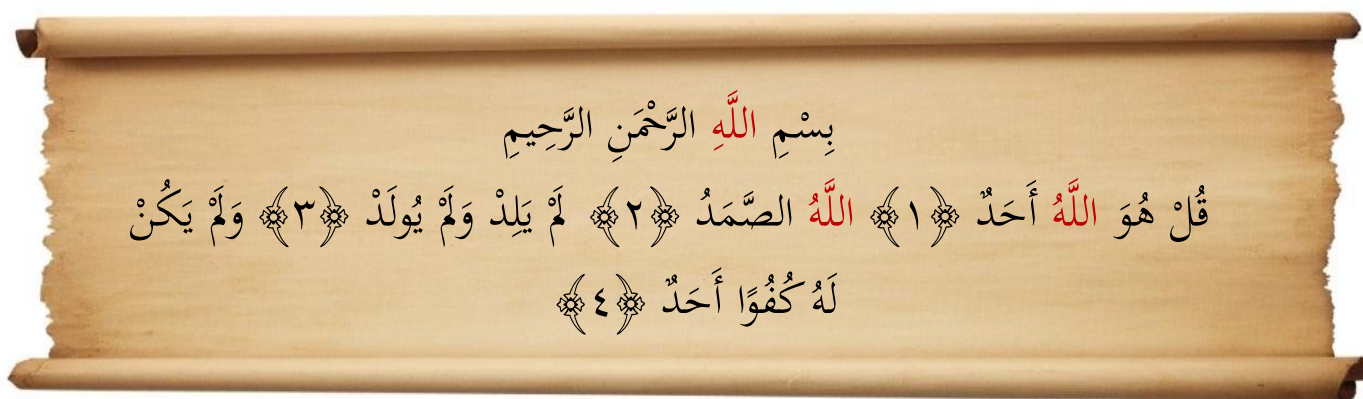 بِسْمِ اللَّهِ الرَّحْمَنِ الرَّحِيمِ
قُلْ هُوَ اللَّهُ أَحَدٌ ﴿١﴾ اللَّهُ الصَّمَدُ ﴿٢﴾ لَمْ يَلِدْ وَلَمْ يُولَدْ ﴿٣﴾ وَلَمْ يَكُنْ
لَهُ كُفُوًا أَحَدٌ ﴿٤﴾